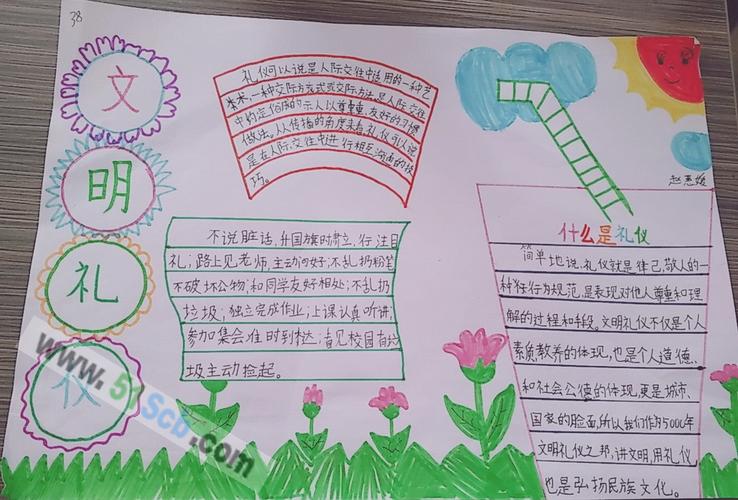 38
文
明
礼
仪
礼仪可以说是人际交往中适用的一种艺
术,一种交际方式或交际方法,是人际交往
中约定俗成的示人以尊重,友好的习惯
做法。从传播的角度来看,礼仪可以说
是在人际交往中进行相互沟通的技
巧。
赵惠媛
不说脏话,升国旗时肃立,行注目
礼;路上见老师,主动问好;不乱扔粉笔
不破坏公物;和同学友好相处;不乱扔
垃圾;独立完成作业;上课认真听讲;
参加集会准时到达;看见校园有垃
圾主动捡起。
什么是礼仪
简单地说,礼仪就是律己,敬人的一
种行为规范,是表现对他人尊重和理
解的过程和手段。文明礼仪不仅是个人
素质教养的体现,也是个人道德、
和社会公德的体现,更是城市、
国家的脸面,所以我们作为5000年
文明礼仪之邦,讲文明,用礼仪,
也是弘扬民族文化。
www.51Scb.com